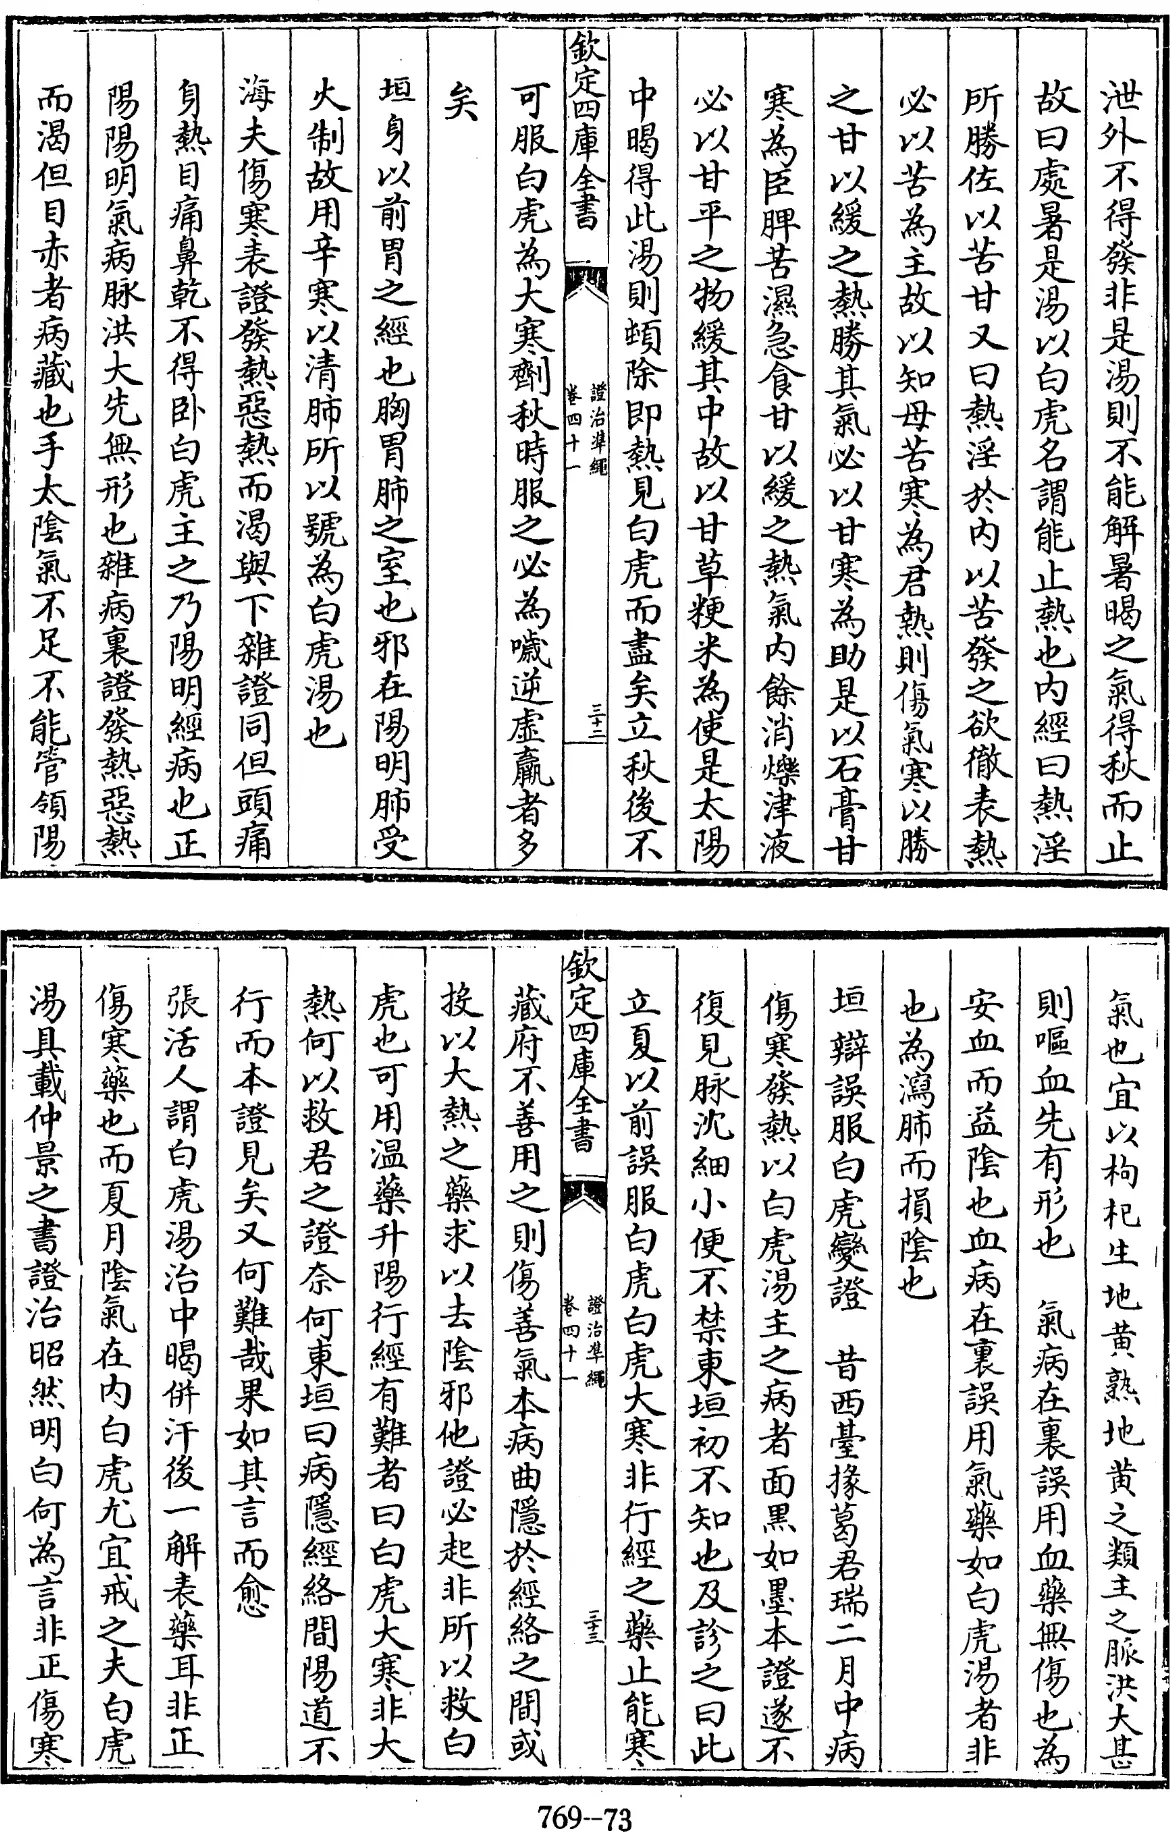 泄外不得發非是湯則不能解暑暍之氣得秋而止
故曰處暑是湯以白虎名謂能止熱也内經曰熱淫
所勝佐以苦甘又曰熱淫於内以苦發之欲徹表熱
必以苦為主故以知母苦寒為君熱則傷氣寒以勝
之甘以緩之熱勝其氣必以甘寒為助是以石膏甘
寒為臣脾苦濕急食甘以緩之熱氣内餘消爍津液
必以甘平之物緩其中故以甘草粳米為使是太陽
中暍得此湯則頓除即熱見白虎而盡矣立秋後不
欽定四庫全書
證治準繩
卷四十一
三十二
可服白虎為大寒劑秋時服之必為噦逆虛羸者多
矣
垣身以前胃之經也胸胃肺之室也邪在陽明肺受
火制故用辛寒以清肺所以號為白虎湯也
海夫傷寒表證發熱惡熱而渴與下雜證同但頭痛
身熱目痛鼻乾不得卧白虎主之乃陽明經病也正
陽陽明氣病脉洪大先無形也雜病裏證發熱惡熱
而渴但目赤者病藏也手太陰氣不足不能管領陽
氣也宜以枸杞生地黄熟地黄之類主之脈洪大甚
則嘔血先有形也 氣病在裏誤用血藥無傷也為
安血而益陰也血病在裏誤用氣藥如白虎湯者非
也為瀉肺而損陰也
垣辯誤服白虎變證 昔西臺掾葛君瑞二月中病
傷寒發熱以白虎湯主之病者面黒如墨本證遂不
復見脉沈細小便不禁東垣初不知也及診之曰此
立夏以前誤服白虎白虎大寒非行經之藥止能寒
欽定四庫全書
證治準繩
卷四十一
三十三
藏府不善用之則傷善氣本病曲隱於經絡之間或
投以大熱之藥求以去陰邪他證必起非所以救白
虎也可用温藥升陽行經有難者曰白虎大寒非大
熱何以救君之證奈何東垣曰病隱經絡間陽道不
行而本證見矣又何難哉果如其言而愈
張活人謂白虎湯治中暍併汗後一解表藥耳非正
傷寒藥也而夏月陰氣在内白虎尤宜戒之夫白虎
湯具載仲景之書證治昭然明白何為言非正傷寒
769--73